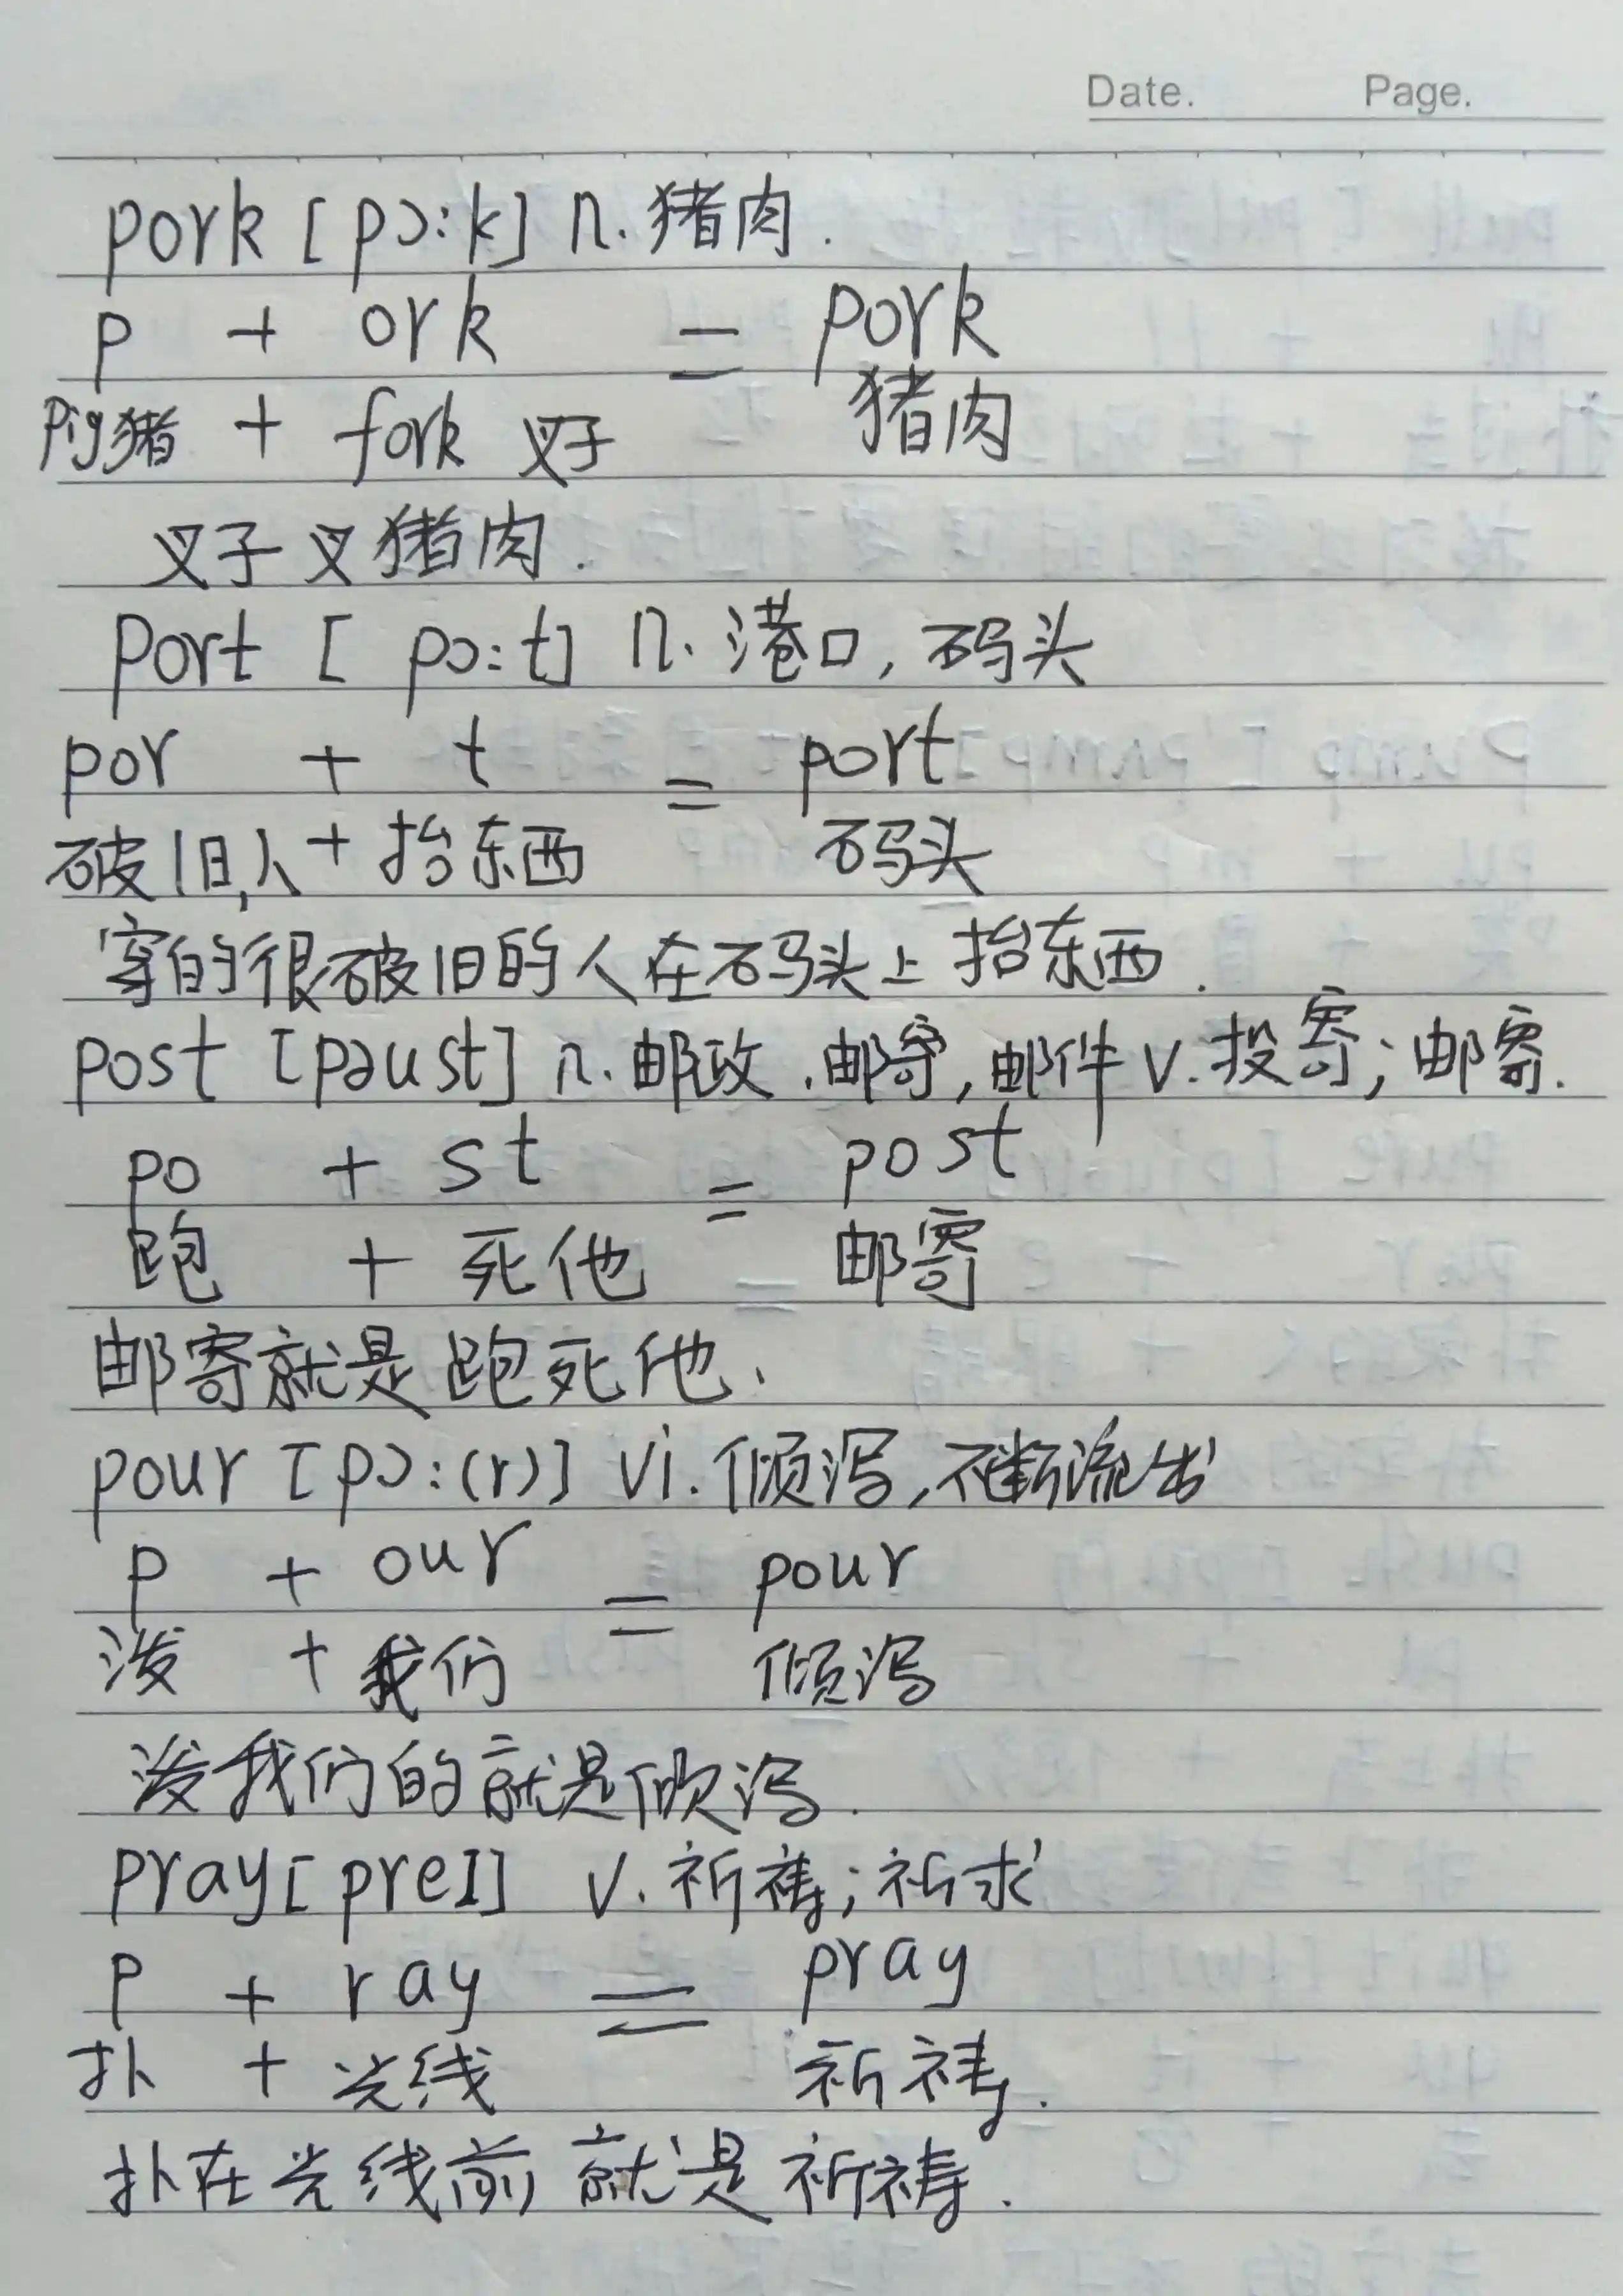 Date. Page.
pork [pɔ:k] n. 猪肉.
p + ork = pork
pig猪 + fork 叉子 猪肉
叉子叉猪肉.
port [pɔ:t] n. 港口, 码头
por + t = port
破旧,人 + 抬东西 码头
穿的很破旧的人在码头上抬东西.
post [pəust] n. 邮政.邮寄,邮件 v.投寄;邮寄.
po + st = post
跑 + 死他 = 邮寄
邮寄就是跑死他、
pour [pɔ:(r)] vi.倾泻,不断流出
p + our = pour
泼 + 我们 倾泻
泼我们的就是倾泻.
pray[preI] v.祈祷;祈求
p + ray = pray
扑 + 光线 祈祷.
扑在光线前就是祈祷.